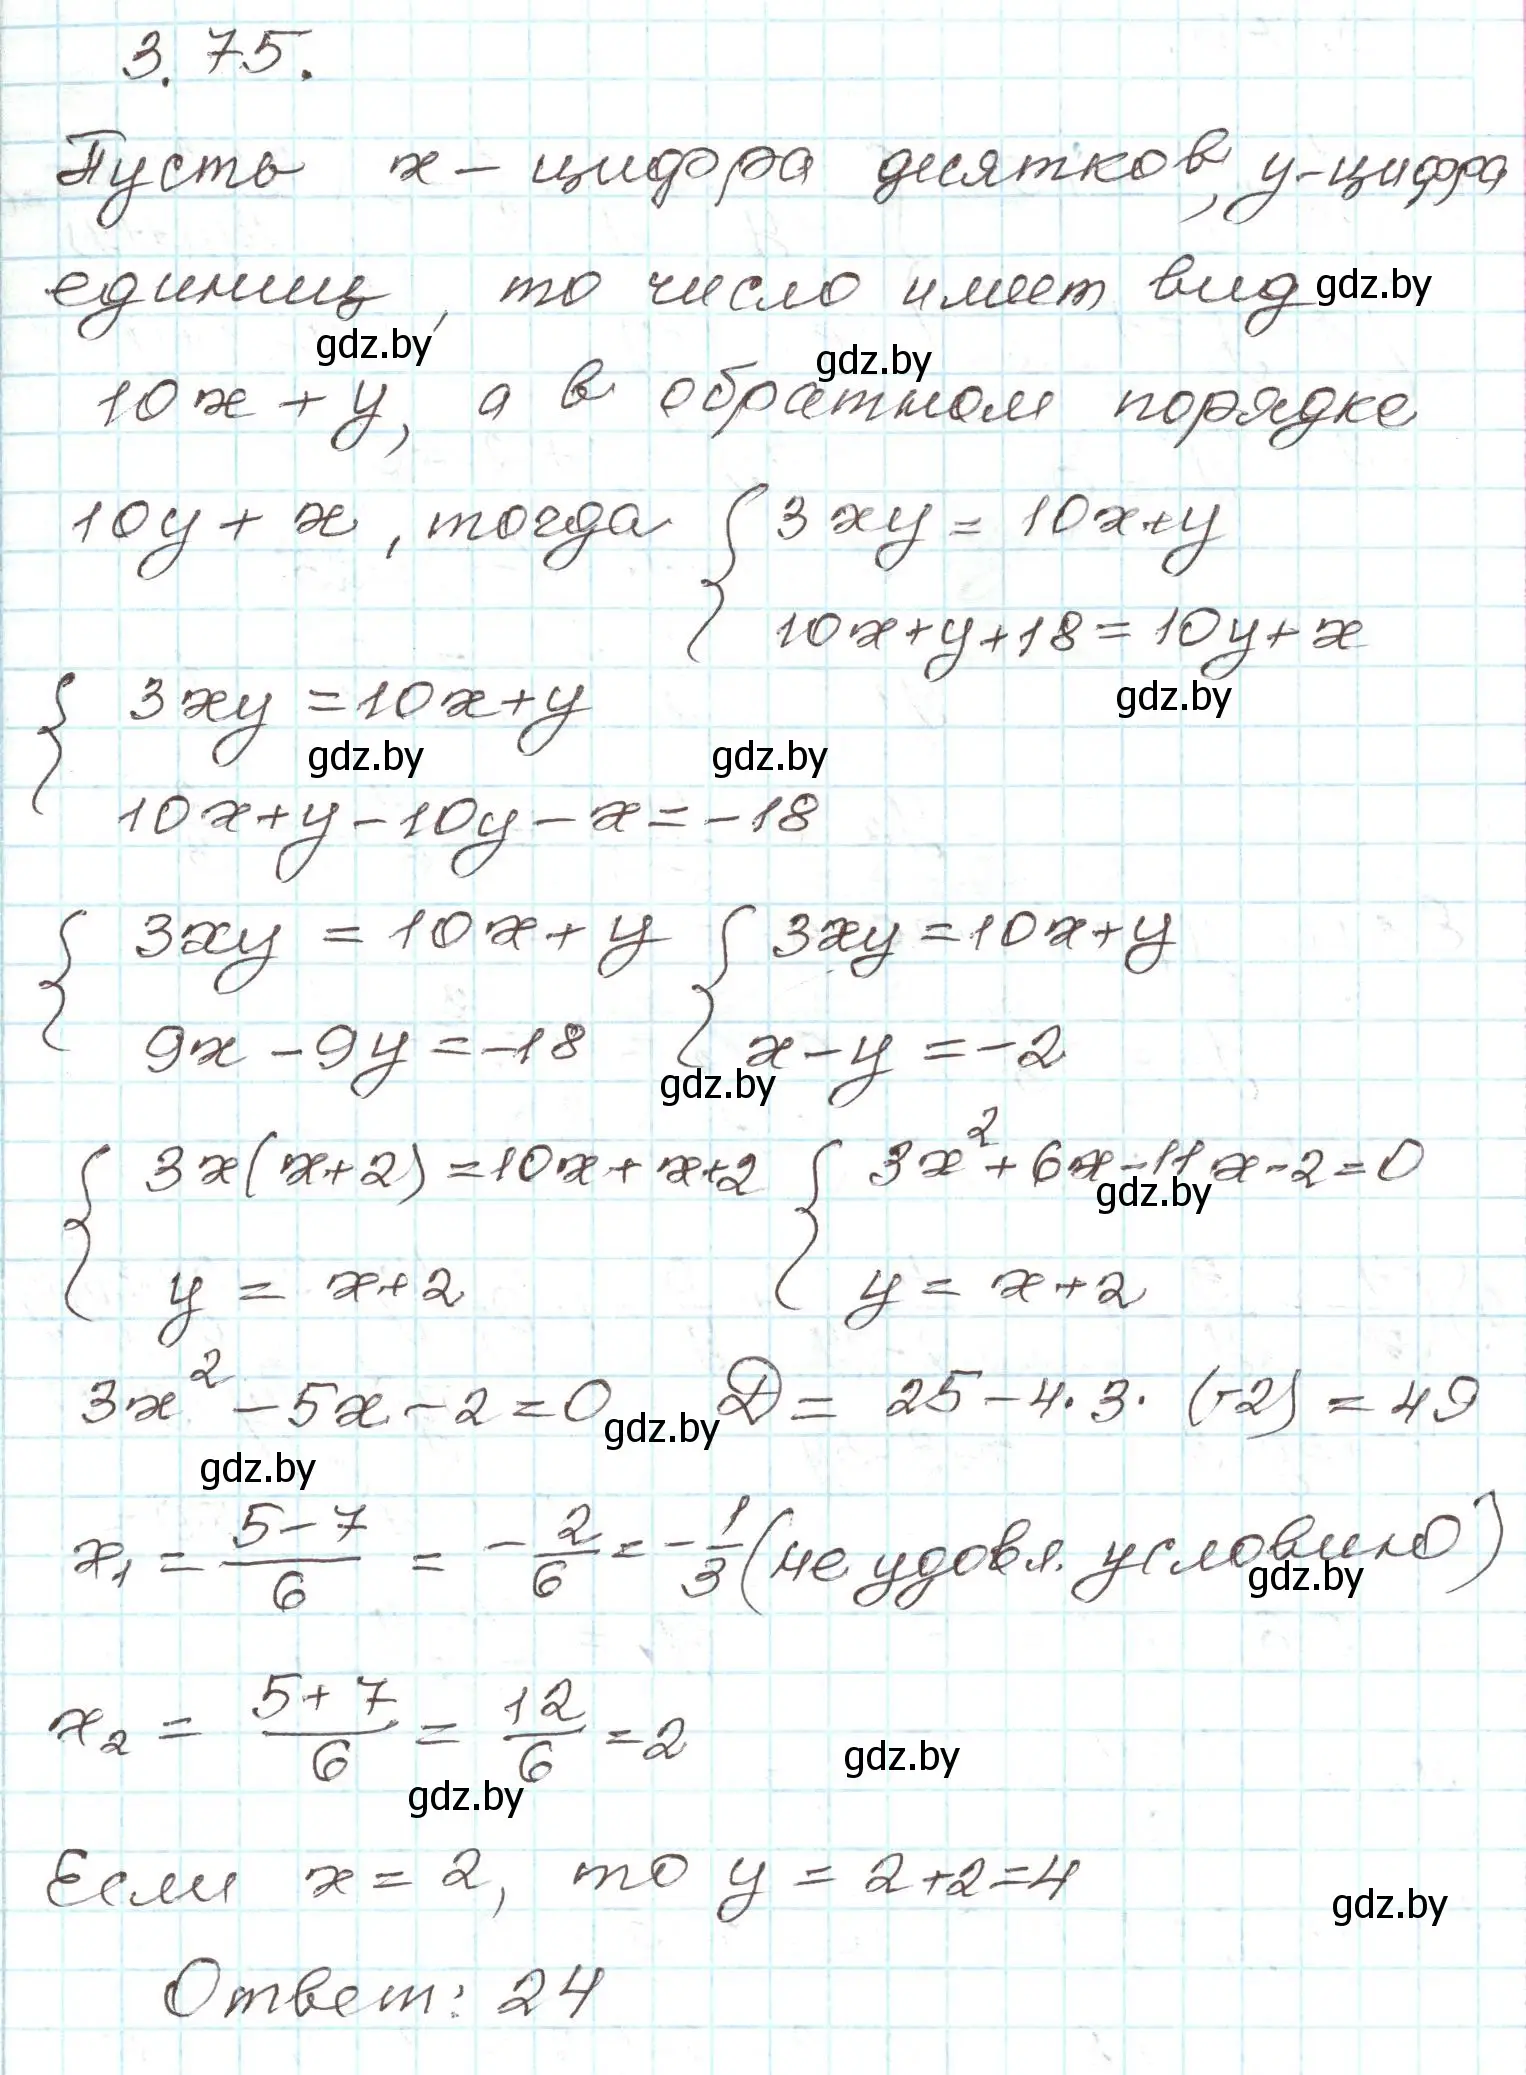 3.75.
Пусть x – цифра десятков, y – цифра
единиц, то число имеет вид gdz.by
gdz.by gdz.by
10x + y, а в обратном порядке
10y + x, тогда { 3xy = 10x + y
10x + y + 18 = 10y + x
gdz.by
{ 3xy = 10x + y
gdz.by gdz.by
10x + y – 10y – x = –18
{ 3xy = 10x + y { 3xy = 10x + y
9x – 9y = –18 x – y = –2
gdz.by
{ 3x(x+2) = 10x + x+2 { 3x² + 6x – 11x – 2 = 0
gdz.by
y = x+2 y = x+2
3x² – 5x – 2 = 0 D = 25 – 4·3·(–2) = 49
gdz.by
gdz.by
x₁ = (5–7)/6 = –2/6 = –1/3 (не удовл. условию)
gdz.by
x₂ = (5+7)/6 = 12/6 = 2
gdz.by
gdz.by
Если x = 2, то y = 2+2=4
gdz.by
Ответ: 24